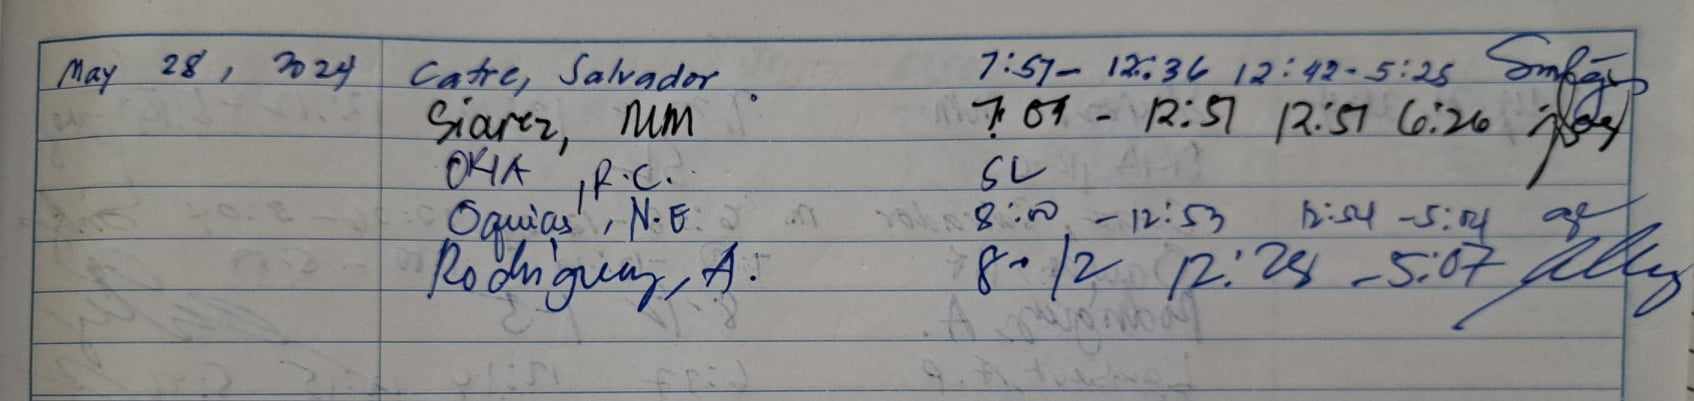 May 28, 2024 Catre, Salvador 7:51 - 12:36 12:42 - 5:25
Siarez, MM 7:01 - 12:51 12:51 6:26
OKIA, R.C. SL
Oquias, N.E 8:00 - 12:53 12:54 - 5:04
Rodriguez, A. 8 - 12 12:28 - 5:07